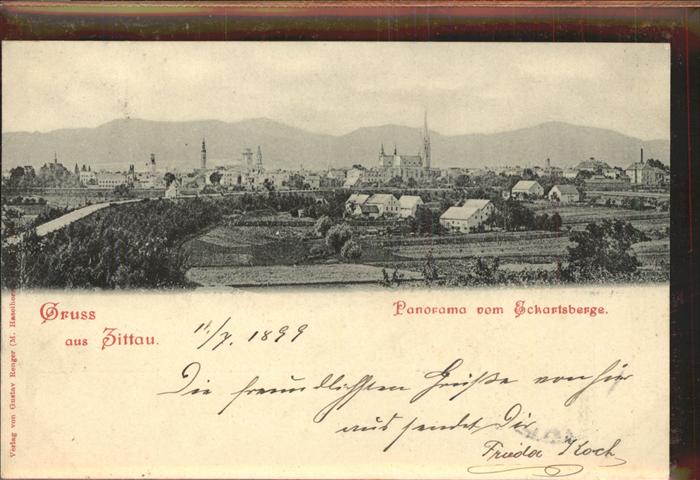 Gruss
aus Zittau.
Panorama vom Eckartsberge.
11/7. 1899
Die freundlichsten Grüße von hier
aus sendet Dir
Frieda Koch
Verlag von Gustav Renger (M. Haselhorst